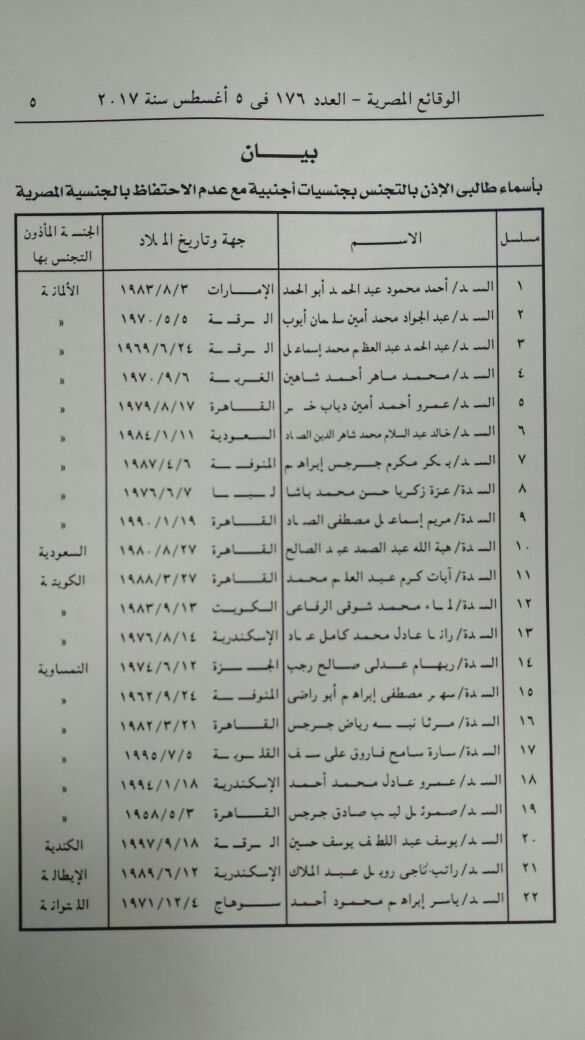 الوقائع المصرية – العدد ١٧٦ فى ٥ أغسطس سنة ٢٠١٧ ٥
بيـــــان
بأسماء طالبى الإذن بالتجنس بجنسيات أجنبية مع عدم الاحتفاظ بالجنسية المصرية
مسلسل الاســـــم جهة وتاريخ الميلاد الجنسية المأذون التجنس بها
١ السيد/ أحمد محمود عبد الحميد أبو الحمد الإمارات ١٩٨٣/٨/٣ الألمانية
٢ السيد/ عبد الجواد محمد أمين سليمان أيوب الشرقية ١٩٧٠/٥/٥ »
٣ السيد/ عبد الحميد عبد العظيم محمد إسماعيل الشرقية ١٩٦٩/٦/٢٤ »
٤ السيد/ محمد ماهر أحمد شاهين الغربية ١٩٧٠/٩/٦ »
٥ السيد/ عمرو أحمد أمين دياب القاهرة ١٩٧٩/٨/١٧ »
٦ السيد/ خالد عبد السلام محمد شاهر الدين الصياد السعودية ١٩٨٤/١/١١ »
٧ السيد/ بيكر مكرم جرجس إبراهيم المنوفية ١٩٨٧/٤/٦ »
٨ السيدة/ عزة زكريا حسن محمد باشا ليبيا ١٩٧٦/٦/٧ »
٩ السيدة/ مريم إسماعيل مصطفى الصياد القاهرة ١٩٩٠/١/١٩ »
١٠ السيدة/ هبة الله عبد الصمد عبد الصالح القاهرة ١٩٨٠/٨/٢٧ السعودية
١١ السيدة/ آيات كرم عبد العليم محمد القاهرة ١٩٨٨/٣/٢٧ الكويتية
١٢ السيدة/ لمياء محمد شوقى الرفاعى الكويت ١٩٨٣/٩/١٣ »
١٣ السيدة/ رانيا عادل محمد كامل عياد الإسكندرية ١٩٧٦/٨/١٤ »
١٤ السيدة/ ريهام عدلى صالح رجب الجيزة ١٩٧٤/٦/١٢ النمساوية
١٥ السيدة/ سهير مصطفى إبراهيم أبو راضى المنوفية ١٩٦٢/٩/٢٤ »
١٦ السيدة/ مرثا نبيه رياض جرجس القاهرة ١٩٨٢/٣/٢١ »
١٧ السيدة/ سارة سامح فاروق على سيف القليوبية ١٩٩٥/٧/٥ »
١٨ السيد/ عمرو عادل محمد أحمد الإسكندرية ١٩٩٤/١/١٨ »
١٩ السيد/ صموئيل لبيب صادق جرجس القاهرة ١٩٥٨/٥/٣ »
٢٠ السيد/ يوسف عبد اللطيف يوسف حسين الشرقية ١٩٩٧/٩/١٨ الكندية
٢١ السيد/ راتب ناجى روبيل عبد الملاك الإسكندرية ١٩٨٩/٦/١٢ الإيطالية
٢٢ السيد/ ياسر إبراهيم محمود أحمد سوهاج ١٩٧١/١٢/٤ الليتوانية